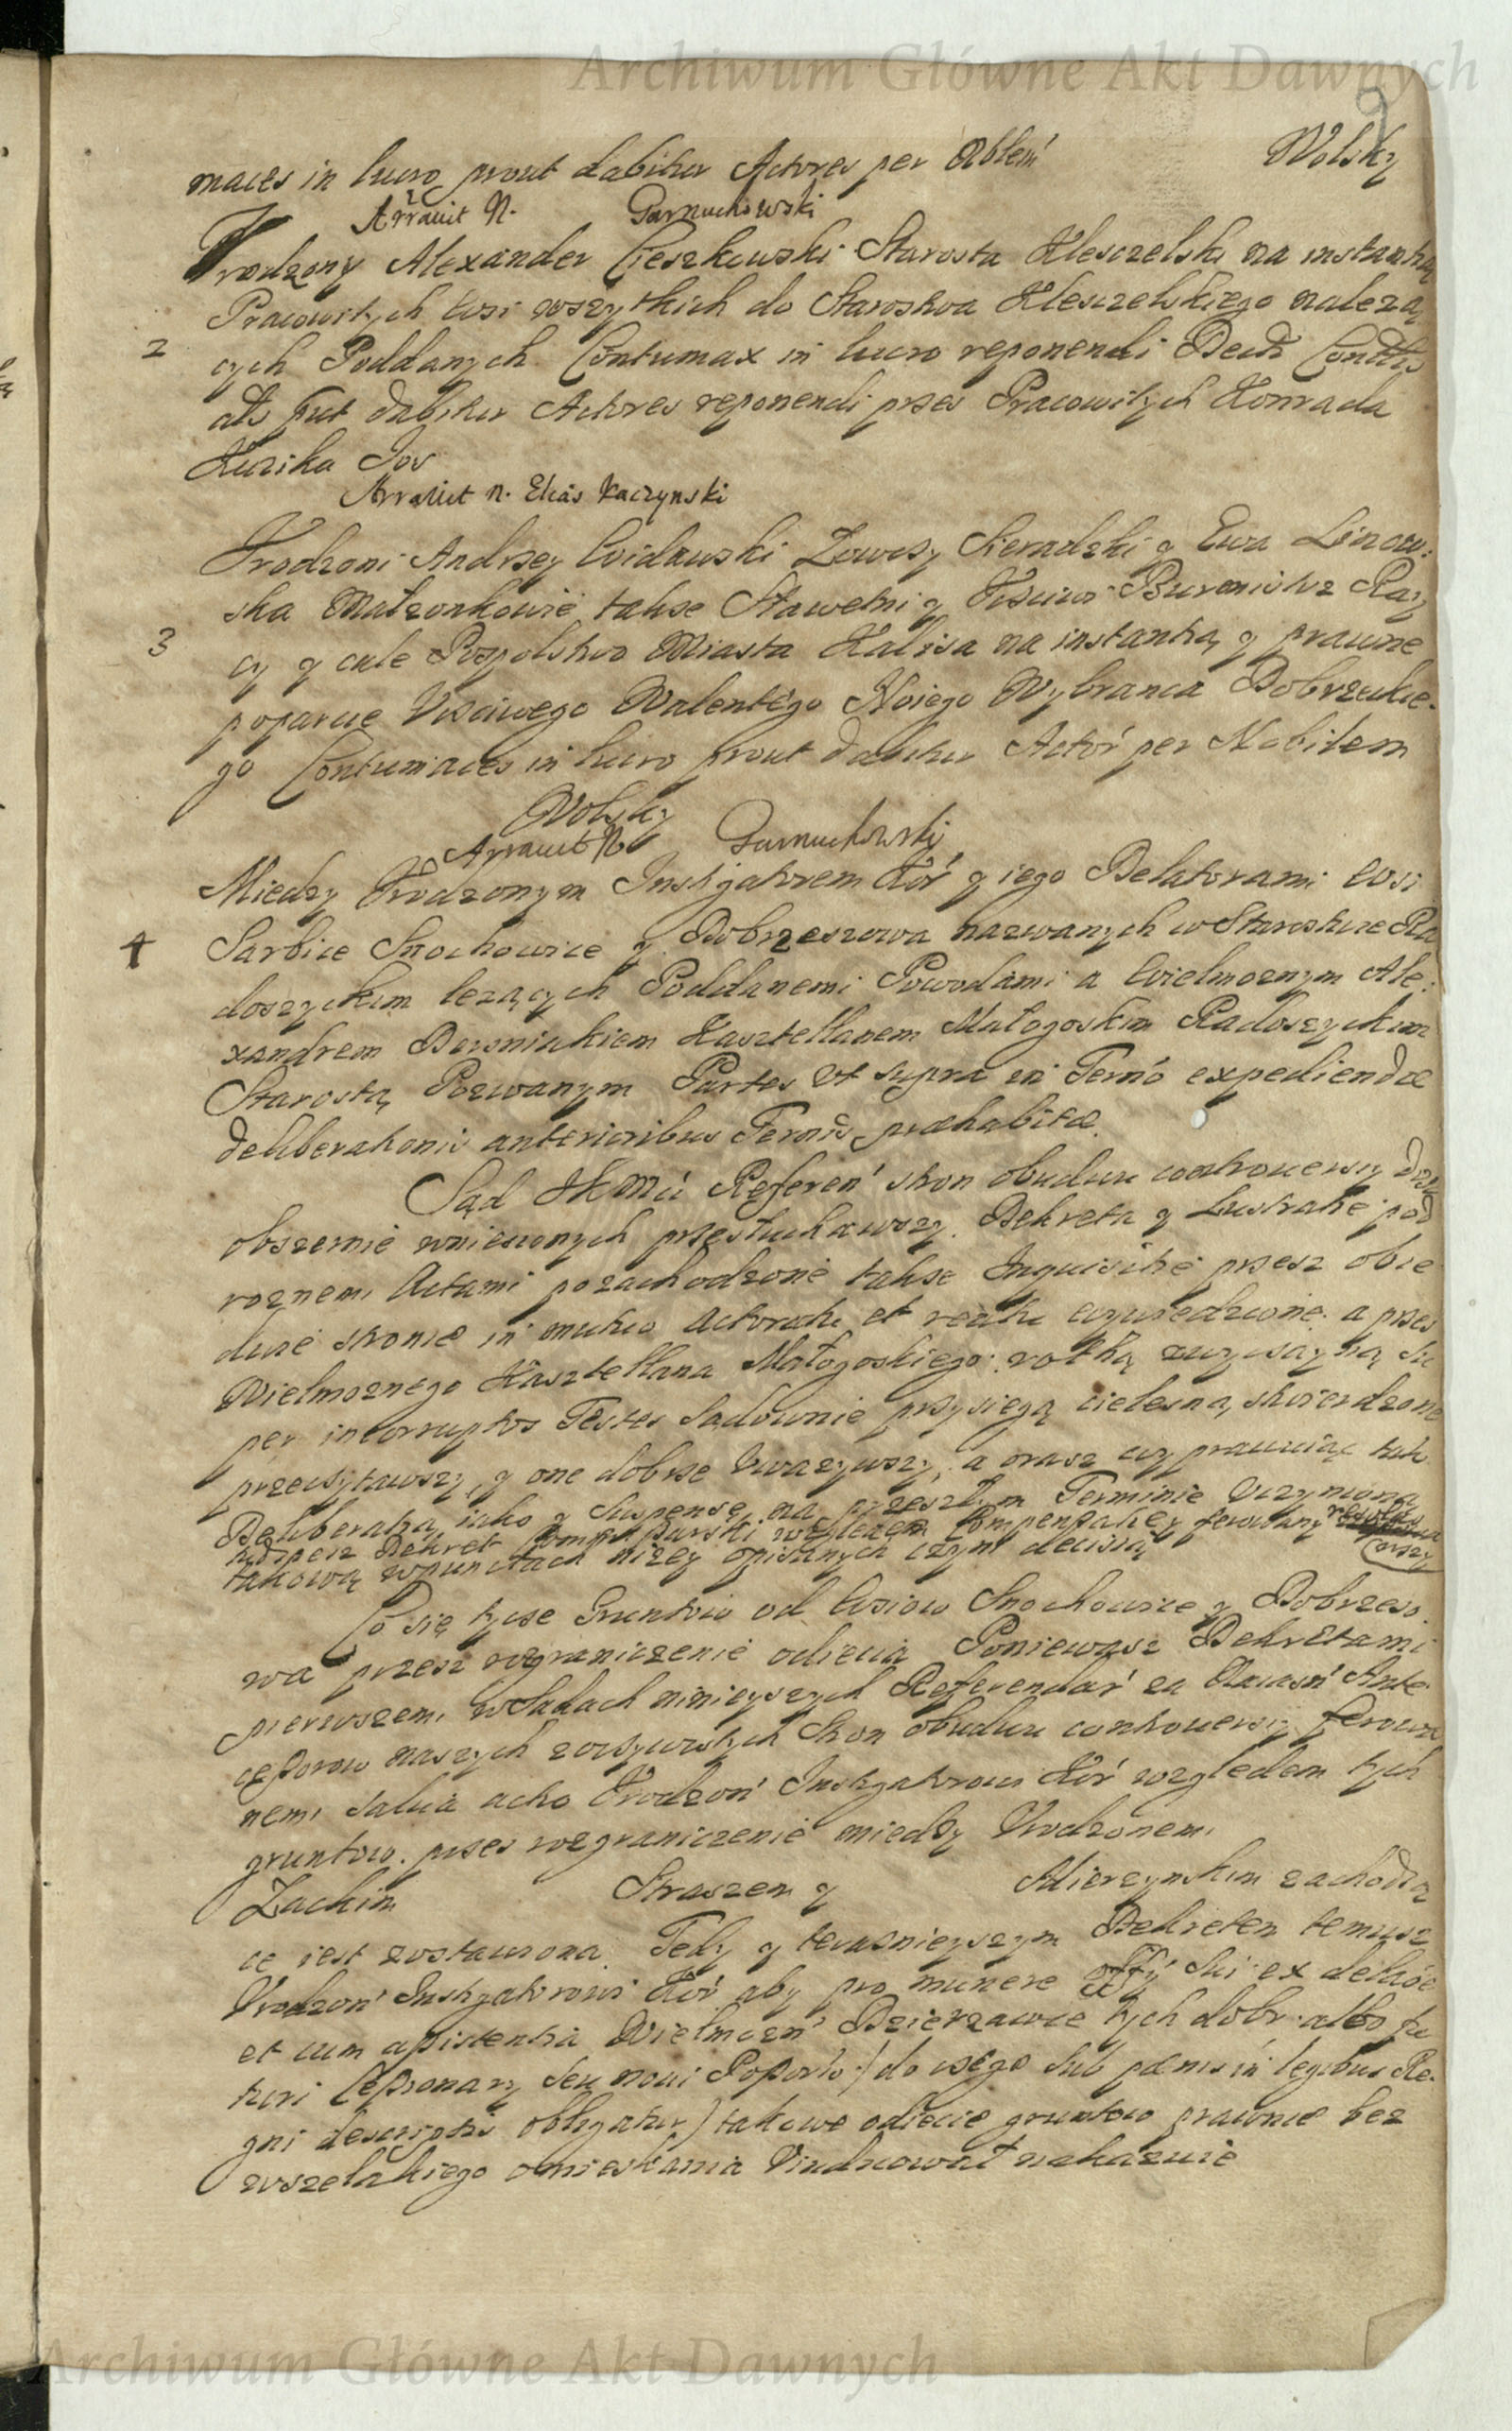 Archiwum Główne Akt Dawnych
maces in lucro prout dabitur Actores per Nblem Wolsky
Arravit N. Garnuchowski
Vrodzony Alexander Cieszkowski Starosta Klesczelski na instantią
Pracowitych wsi wszytkich do Starostwa Klesczelskiego należą
2
cych Poddanych Contumax in lucro reponendi Decti
als put dabitur Actores reponendi przes Pracowitych Konrada
Kuzika Jos
Arravit n. Elias Kaczynski
Vrodzoni Andrzey Widawski Łowczy Sieradzki y Ewa Linow:
ska Małzonkowie, takze Sławetni y Vsciwi Burmistrz Ray
3
cy y całe Pospolstwo Miasta Kalisa na instantią y prawne
poparcie Vsciwego Walentego Noiego Wybranca Dobrzelkie.
go Contumaces in lucro prout dabitur Actor per Nobilem
Wolsky
Arravit N. Garnuchowski
Miedzy Vrodzonym Instygatorem Kor y iego Delatorami wsi
4
Sarbice Snochowice y Dobrzeszowa nazwanych w Starostwie Ra
doszyckim lezących Poddanemi Powodami a Wielmoznym Ale:
xandrem Bewniakiem Kasztellanem Małogoskim Radoszyckim
Starostą Pozwanym Partes Vt supra in Termo expediendæ
deliberationis anterioribus Termis præhabitæ.
Sąd JKMci Referen stron obudwu controwersy
obszernie wniesionych przesłuchawszy. Dekreta y Lustratie pod
roznemi Actami pozachodzone takze Inquisitie przesz obie
dwie stronie in Actorati et reati wywiedzione. a przes
Wielmoznego Kasztellana Małogoskiego:
per incorruptos Testes Sądownie przysiegą cielesną stwierdzone
przeczytawszy, y one dobrze Vwazywszy, a orasz wyprawuiąc tak
Deliberatią iako y Suspensę na przeszłym Terminie Vczynioną
Dekret względem Compensatiey ferowany
takową w punctach nizey opisanych czyni decisią
Co się tycze Gruntow od wsiow Snochowice y Dobrzeso
wa przesz rozgraniczenie odiecia Poniewasz Dekretami
pierwszemi w Sadach ninieyszych Referendar za Antec
ceßorow naszych zwyszwszych Stron obudwu controuersiy ferowa
nemi salua actio Vrodzon Instygatorowi Kor względem tych
gruntow. przes rozgraniczenie miedzy Vrodzonemi
Zackim Straszem y Mierzynskim zachodzą
ce iest zostawiona. Tedy y terasnieyszym Dekretem temusz
Vrodzon Instygatorowi Kor aby pro munere offy sui ex delatõe
et cum aßistentia Wielmozn Dzierzawce tych dobr. albo fu
turi Ceßionary seu noui Poßoris / do czego sub pœnis in legibus Re.
gni descriptis obligatur) takowe odięcie gruntow prawnie bez
wszelakiego omieszkania Vindicował nakazuie
Archiwum Główne Akt Dawnych